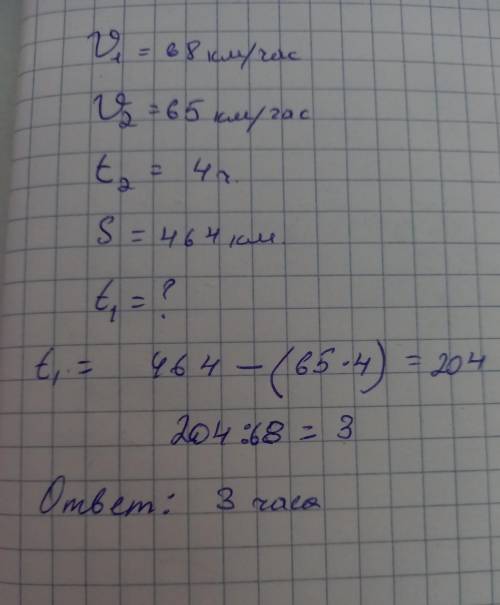 V₁ = 68 км/час
V₂ = 65 км/час
t₂ = 4 ч.
S = 464 км.
t₁ = ?
t₁ = 464 – (65·4) = 204
204:68 = 3
Ответ: 3 часа